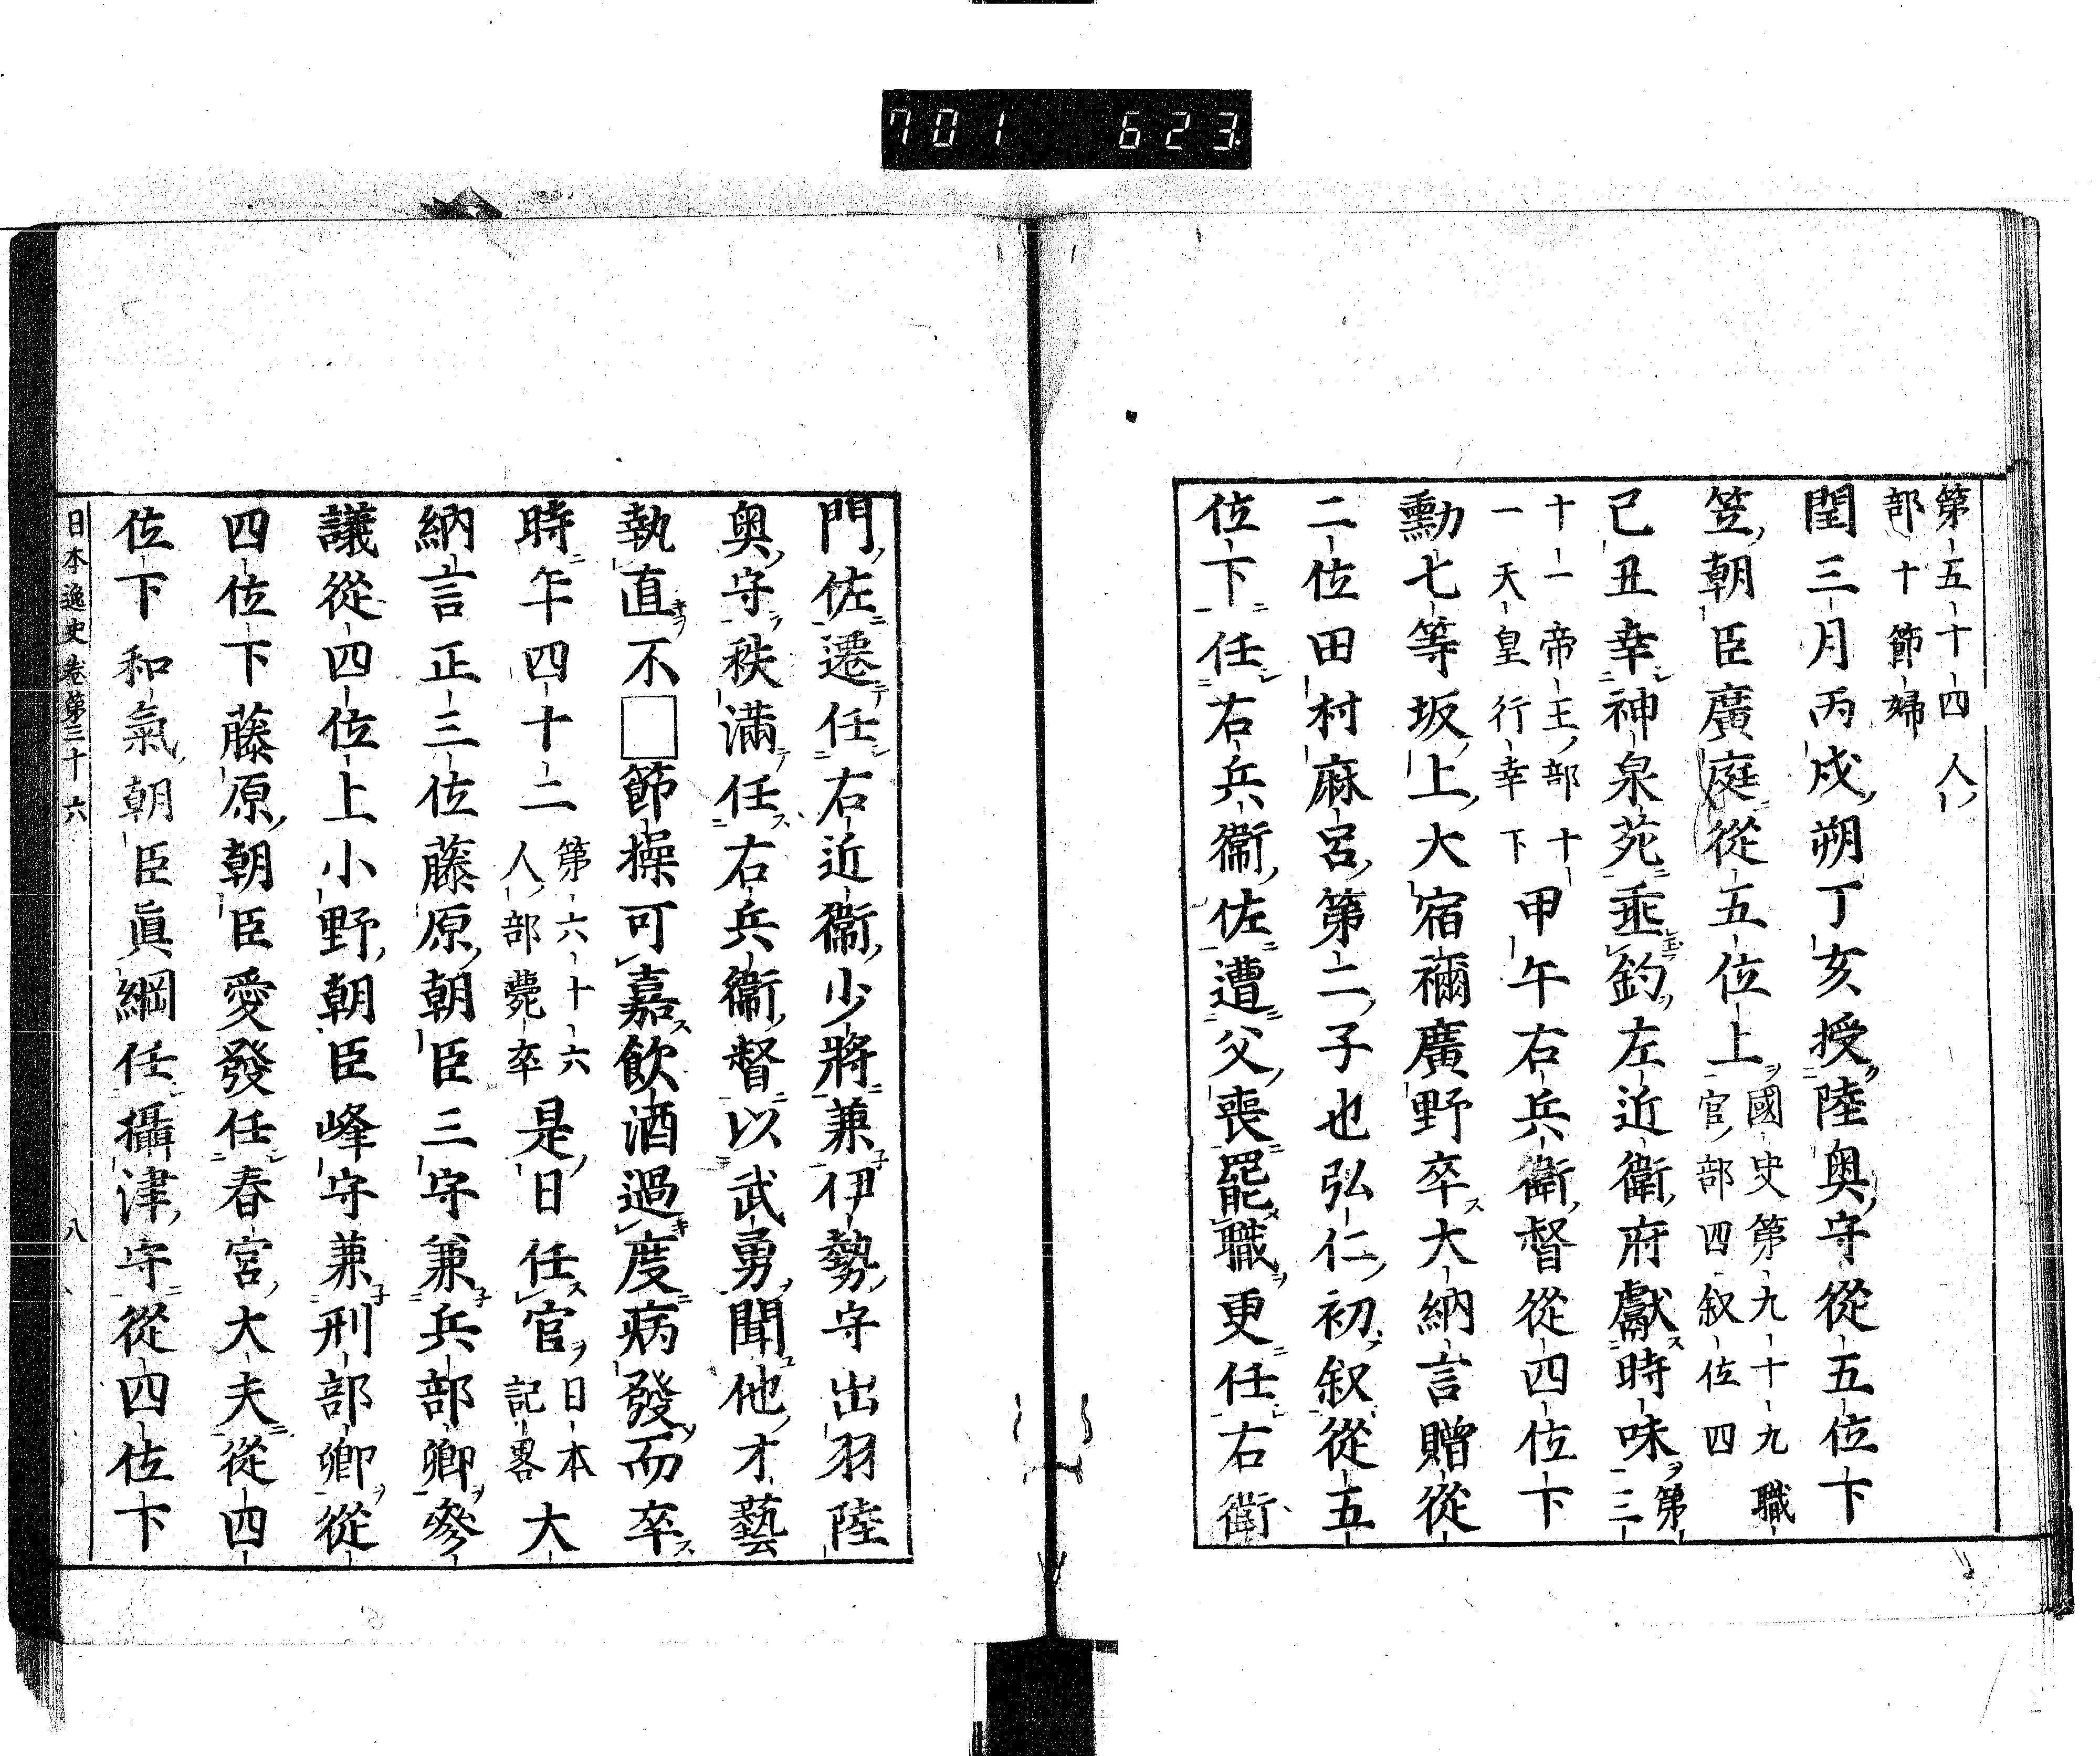 701 623.
第五十四人
部十節婦
閏三月丙戍朔丁亥授陸奥守從五位下
笠朝臣廣庭從五位上國史第九十九職
官部四叙位四
己丑幸神泉苑垂釣左近衛府獻時味第三
十一帝王部十
一天皇行幸下
甲午右兵衛督從四位下
勳七等坂上大宿禰廣野卒大納言贈從
二位田村麻呂第二子也弘仁初叙從五
位下任右兵衞佐遭父喪罷職更任右衛
門佐遷任右近衞少將兼伊勢守出羽陸
奥守秩滿任右兵衞督以武勇聞他才藝
執直不□節操可嘉飲酒過度病發而卒
時年四十二第六十六
人部薨卒
是日任官日本
記畧
大
納言正三位藤原朝臣三守兼兵部卿參
議從四位上小野朝臣峰守兼刑部卿從
四位下藤原朝臣愛發任春宮大夫從四
位下和氣朝臣眞綱任攝津守從四位下
日本逸史卷第三十六 八